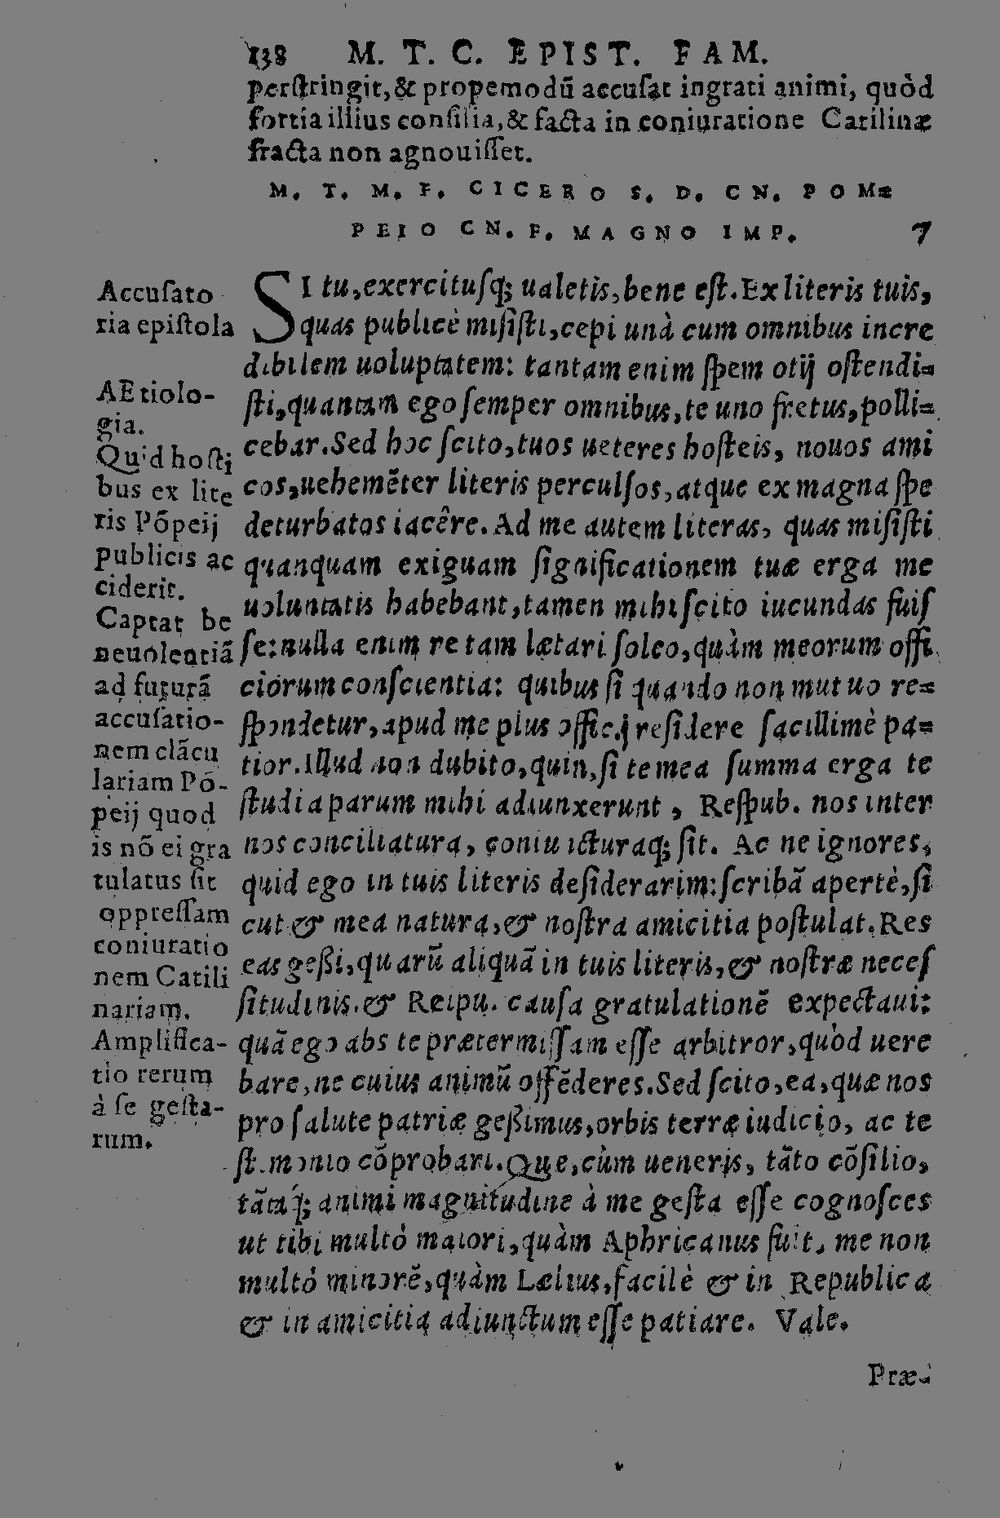 138 M. T. C. EPIST. FAM.
perstringit, & propemodũ accusat ingrati animi, quòd
fortia illius consilia, & facta in coniuratione Catilinæ
fracta non agnouisset.
M. T. M. F. CICERO S. D. CN. POM=
PEIO CN. F. MAGNO IMP. 7
SI tu, exercitusq; ualetis, bene est. Ex literis tuis,
quas publicè misisti, cepi unà cum omnibus incre
dibilem uoluptatem: tantam enim spem otij ostendi=
sti, quantam ego semper omnibus, te uno fretus, polli=
cebar. Sed hoc scito, tuos ueteres hosteis, nouos ami
cos, uehemẽter literis perculsos, atque ex magna spe
deturbatos iacêre. Ad me autem literas, quas misisti
quanquam exiguam significationem tuæ erga me
uoluntatis habebant, tamen mihi scito iucundas fuis
se: nulla enim re tam lætari soleo, quàm meorum offi
ciorum conscientia: quibus si quando non mutuo re=
spondetur, apud me plus officij residere facillimè pa=
tior. Illud non dubito, quin, si te mea summa erga te
studia parum mihi adiunxerunt, Respub. nos inter
nos conciliatura, coniuncturaq; sit. Ac ne ignores,
quid ego in tuis literis desiderarim: scribã apertè, si
cut & mea natura, & nostra amicitia postulat. Res
eas geßi, quarũ aliquã in tuis literis, & nostræ neces
situdinis, & Reipu. causa gratulationẽ expectaui:
quã ego abs te prætermissam esse arbitror, quòd uere
bare, ne cuius animũ offẽderes. Sed scito, ea, quæ nos
pro salute patriæ geßimus, orbis terræ iudicio, ac te
stimonio cõprobari. Que, cùm ueneris, tãto cõsilio,
tãtaq́; animi magnitudine à me gesta esse cognosces
ut tibi multò maiori, quàm Aphricanus fuit, me non
multò minorẽ, quàm Lælius, facilè & in Republica
& in amicitia adiunctum esse patiare. Vale.
Præ-
Accusato
ria epistola
AEtiolo-
gia.
Quid hosti
bus ex lite
ris Põpeij
publicis ac
ciderit.
Captat be
neuolentiã
ad futurã
accusatio-
nem clãcu
lariam Põ-
peij quod
is nõ ei gra
tulatus sit
oppressam
coniuratio
nem Catili
nariam.
Amplifica-
tio rerum
à se gesta-
rum.